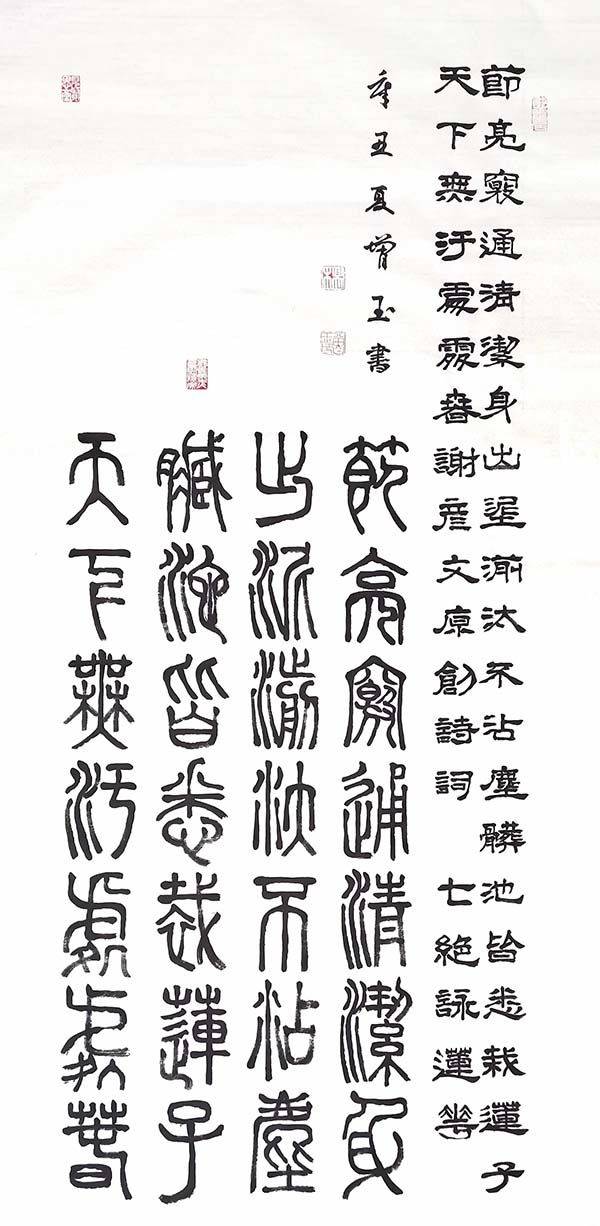 節亮竅通清潔身出湔汰不沾塵髒池皆悉栽蓮子
天下無汙處處春謝彥文原創詩詞 七絕詠蓮花
辛丑夏增玉書
節亮竅通清潔身
出湔汰不沾塵
髒池皆悉栽蓮子
天下無汙處處春